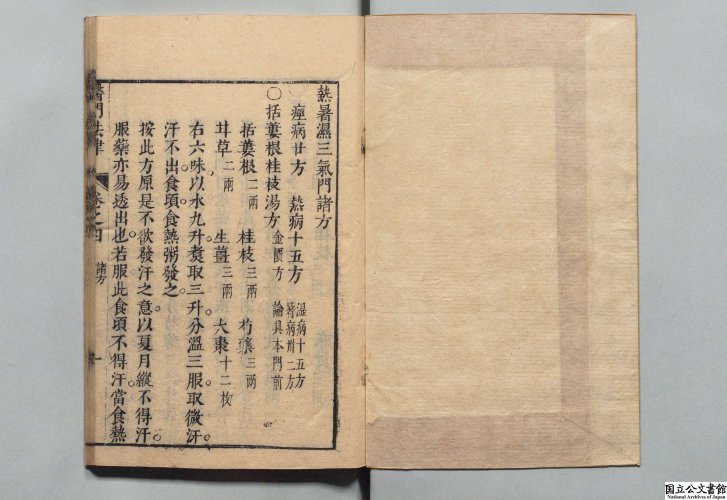 熱暑濕三氣門諸方
痙病廿方 熱病十五方 濕病十五方 暑病卅二方
○括蔞根桂枝湯方 金匱方 論具本門前
括蔞根二兩 桂枝三兩 芍藥三兩
甘草二兩 生薑三兩 大棗十二枚
右六味以水九升煑取三升分溫三服取微汗
汗不出食頃食熱粥發之
按此方原是不欲發汗之意以夏月縱不得汗
服藥亦易透出也若服此食頃不得汗當食熱
醫門法律 卷之四 諸方 一
国立公文書館
National Archives of Japan